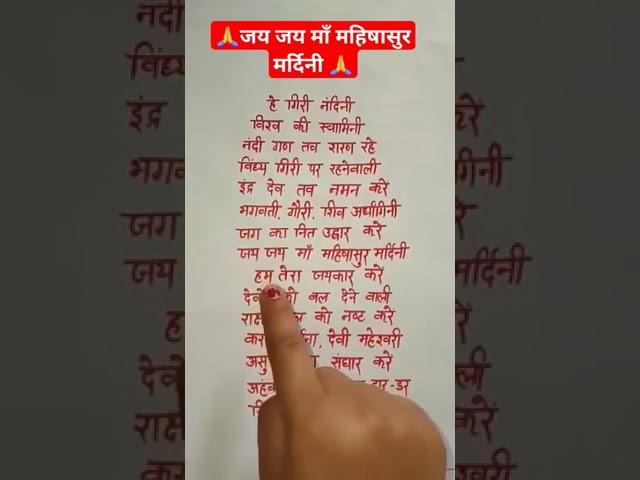 🙏जय जय माँ महिषासुर
मर्दिनी 🙏
हे गिरी नंदिनी
विश्व की स्वामिनी
नंदी गण तव शरण रहे
विंध्य गिरी पर रहनेवाली
इंद्र देव तव नमन करें
भगवती, गौरी, शिव अर्धांगिनी
जग का नित उद्धार करे
जय जय माँ महिषासुर मर्दिनी
हम तेरा जयकार करें
को बल देने वाली
को नष्ट करें
देवी महेश्वरी
संघार करें